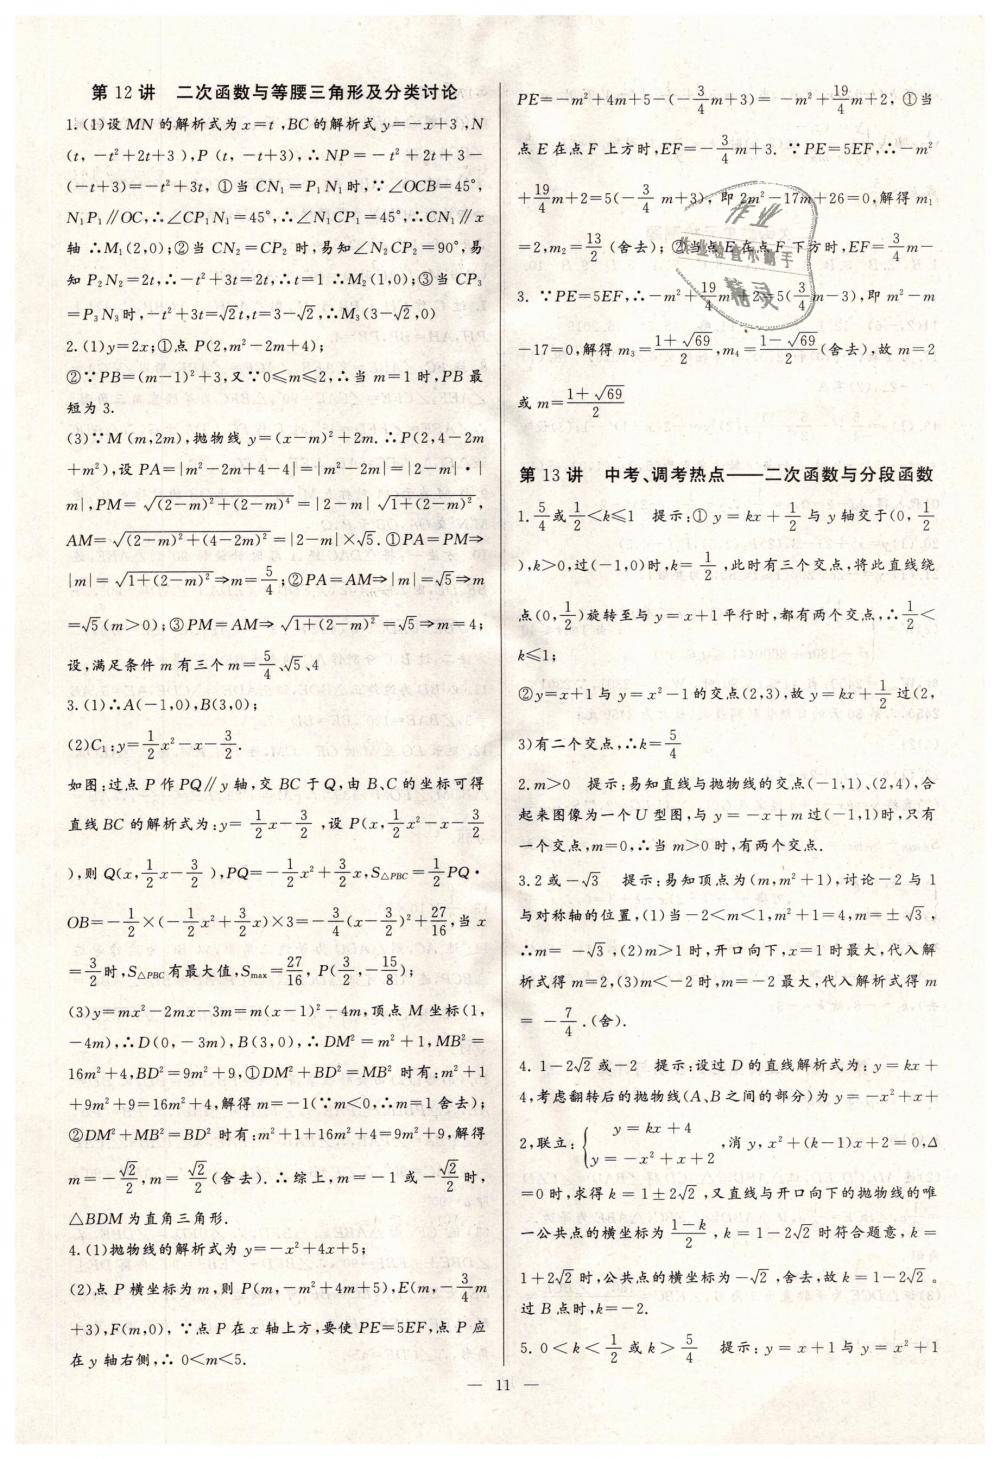 第 12 讲　二次函数与等腰三角形及分类讨论
1.(1)设 MN 的解析式为 x=t ,BC 的解析式 y=-x+3 ,N
(t, -t²+2t+3 ),P (t, -t+3),∴NP= - t² + 2t + 3 -
(-t+3)=-t²+3t, ①当 CN₁=P₁N₁时,∵∠OCB=45°,
N₁P₁∥OC,∴∠CP₁N₁=45°,∴∠N₁CP₁=45°,∴CN₁∥x
轴 ∴M₁(2,0);②当 CN₂=CP₂ 时,易知∠N₂CP₂=90°,易
知 P₂N₂=2t,∴-t²+3t=2t,∴t=1 ∴M₂(1,0);③当 CP₃
=P₃N₃时,-t²+3t=√2t,t=3-√2,∴M₃(3-√2,0)
2.(1)y=2x;①点 P(2,m²-2m+4);
②∵PB=(m-1)²+3,又∵0≤m≤2,∴当 m=1 时,PB 最
短为 3.
(3)∵M (m,2m),抛物线 y=(x-m)²+2m.∴P(2,4-2m
+m²),设 PA=|m²-2m+4-4|=|m²-2m|=|2-m|·|
m|,PM= √((2-m)²+(2-m)⁴) =|2-m| √(1+(2-m)²) ,
AM= √((2-m)²+(4-2m)²) =|2-m|×√5. ①PA=PM⇒
|m|= √(1+(2-m)²) ⇒m= 5/4;②PA=AM⇒|m|=√5⇒m
=√5(m>0);③PM=AM⇒ √(1+(2-m)²) =√5⇒m=4;
设,满足条件 m 有三个 m= 5/4、√5、4
3.(1)∴A(-1,0),B(3,0);
(2)C₁:y= 1/2x²-x- 3/2.
如图:过点 P 作 PQ∥y 轴,交 BC 于 Q,由 B、C 的坐标可得
直线 BC 的解析式为:y= 1/2x- 3/2 ,设 P(x, 1/2x²-x- 3/2
),则 Q(x, 1/2x- 3/2 ),PQ=- 1/2x²+ 3/2x,S△PBC= 1/2PQ·
OB=- 1/2×(- 1/2x²+ 3/2x)×3=- 3/4(x- 3/2)²+ 27/16,当 x
= 3/2时,S△PBC有最大值,Smax= 27/16, P( 3/2,- 15/8);
(3)y=mx²-2mx-3m=m(x-1)²-4m,顶点 M 坐标(1,
-4m),∴D(0, -3m),B(3,0),∴DM² = m² + 1,MB² =
16m²+4,BD²=9m²+9,①DM²+BD²=MB² 时有:m²+1
+9m²+9=16m²+4,解得 m=-1(∵m<0,∴m=1 舍去);
②DM²+MB²=BD² 时有:m²+1+16m²+4=9m²+9,解得
m=- √2/2,m= √2/2(舍去). ∴综上,m=-1 或- √2/2时,
△BDM 为直角三角形.
4.(1)抛物线的解析式为 y=-x²+4x+5;
(2)点 P 横坐标为 m,则 P(m,-m²+4m+5),E(m,- 3/4m
+3),F(m,0), ∵点 P 在 x 轴上方,要使 PE=5EF,点 P 应
在 y 轴右侧,∴ 0<m<5.
PE=-m²+4m+5-(- 3/4m+3)= -m²+ 19/4m+2, ①当
点 E 在点 F 上方时,EF=- 3/4m+3. ∵PE=5EF,∴-m²
+ 19/4m+2=5(- 3/4 m+3),即 2m²-17m+26=0,解得 m₁
=2,m₂= 13/2 (舍去); ②当点 E 在点 F 下方时,EF= 3/4m-
3. ∵PE=5EF,∴-m²+ 19/4m+2=5( 3/4m-3),即 m²-m
-17=0,解得 m₃= (1+√69)/2 ,m₄= (1-√69)/2 (舍去),故 m=2
或 m= (1+√69)/2
第 13 讲　中考、调考热点——二次函数与分段函数
1. 5/4或 1/2<k≤1　提示:① y= kx + 1/2 与 y 轴交于(0, 1/2
),k>0,过(-1,0)时,k= 1/2 ,此时有三个交点,将此直线绕
点(0, 1/2)旋转至与 y=x+1 平行时,都有两个交点,∴ 1/2<
k≤1;
②y=x+1 与 y=x²-1 的交点(2,3),故 y=kx+ 1/2 过(2,
3)有二个交点,∴k= 5/4
2.m>0　提示:易知直线与抛物线的交点(-1,1)、(2,4),合
起来图像为一个 U 型图,与 y= -x+m 过(-1,1)时,只有
一个交点,m=0,∴当 m>0 时,有两个交点.
3.2 或-√3　提示:易知顶点为(m,m²+1),讨论-2 与 1
与对称轴的位置,(1)当-2<m<1,m²+1=4,m=±√3,
∴m= -√3,(2)m>1 时,开口向下,x=1 时最大,代入解
析式得 m=2,(3)m<-2 时,m=-2 最大,代入解析式得 m
= - 7/4.(舍).
4. 1-2√2 或-2　提示:设过 D 的直线解析式为: y = kx +
4,考虑翻转后的抛物线(A、B 之间的部分)为 y= -x²+x+
2,联立:{ y = kx + 4 y = -x² + x + 2 ,消 y, x²+(k-1)x+2=0,△
=0 时,求得 k = 1±2√2 ,又直线与开口向下的抛物线的唯
一公共点的横坐标为 (1-k)/2 , k = 1-2√2 时符合题意, k =
1+2√2 时,公共点的横坐标为-√2 ,舍去,故 k=1-2√2 。
过 B 点时,k=-2.
5. 0<k< 1/2 或 k> 5/4　提示: y = x + 1 与 y = x² + 1
— 11 —
作业
作业检查小助手
精灵